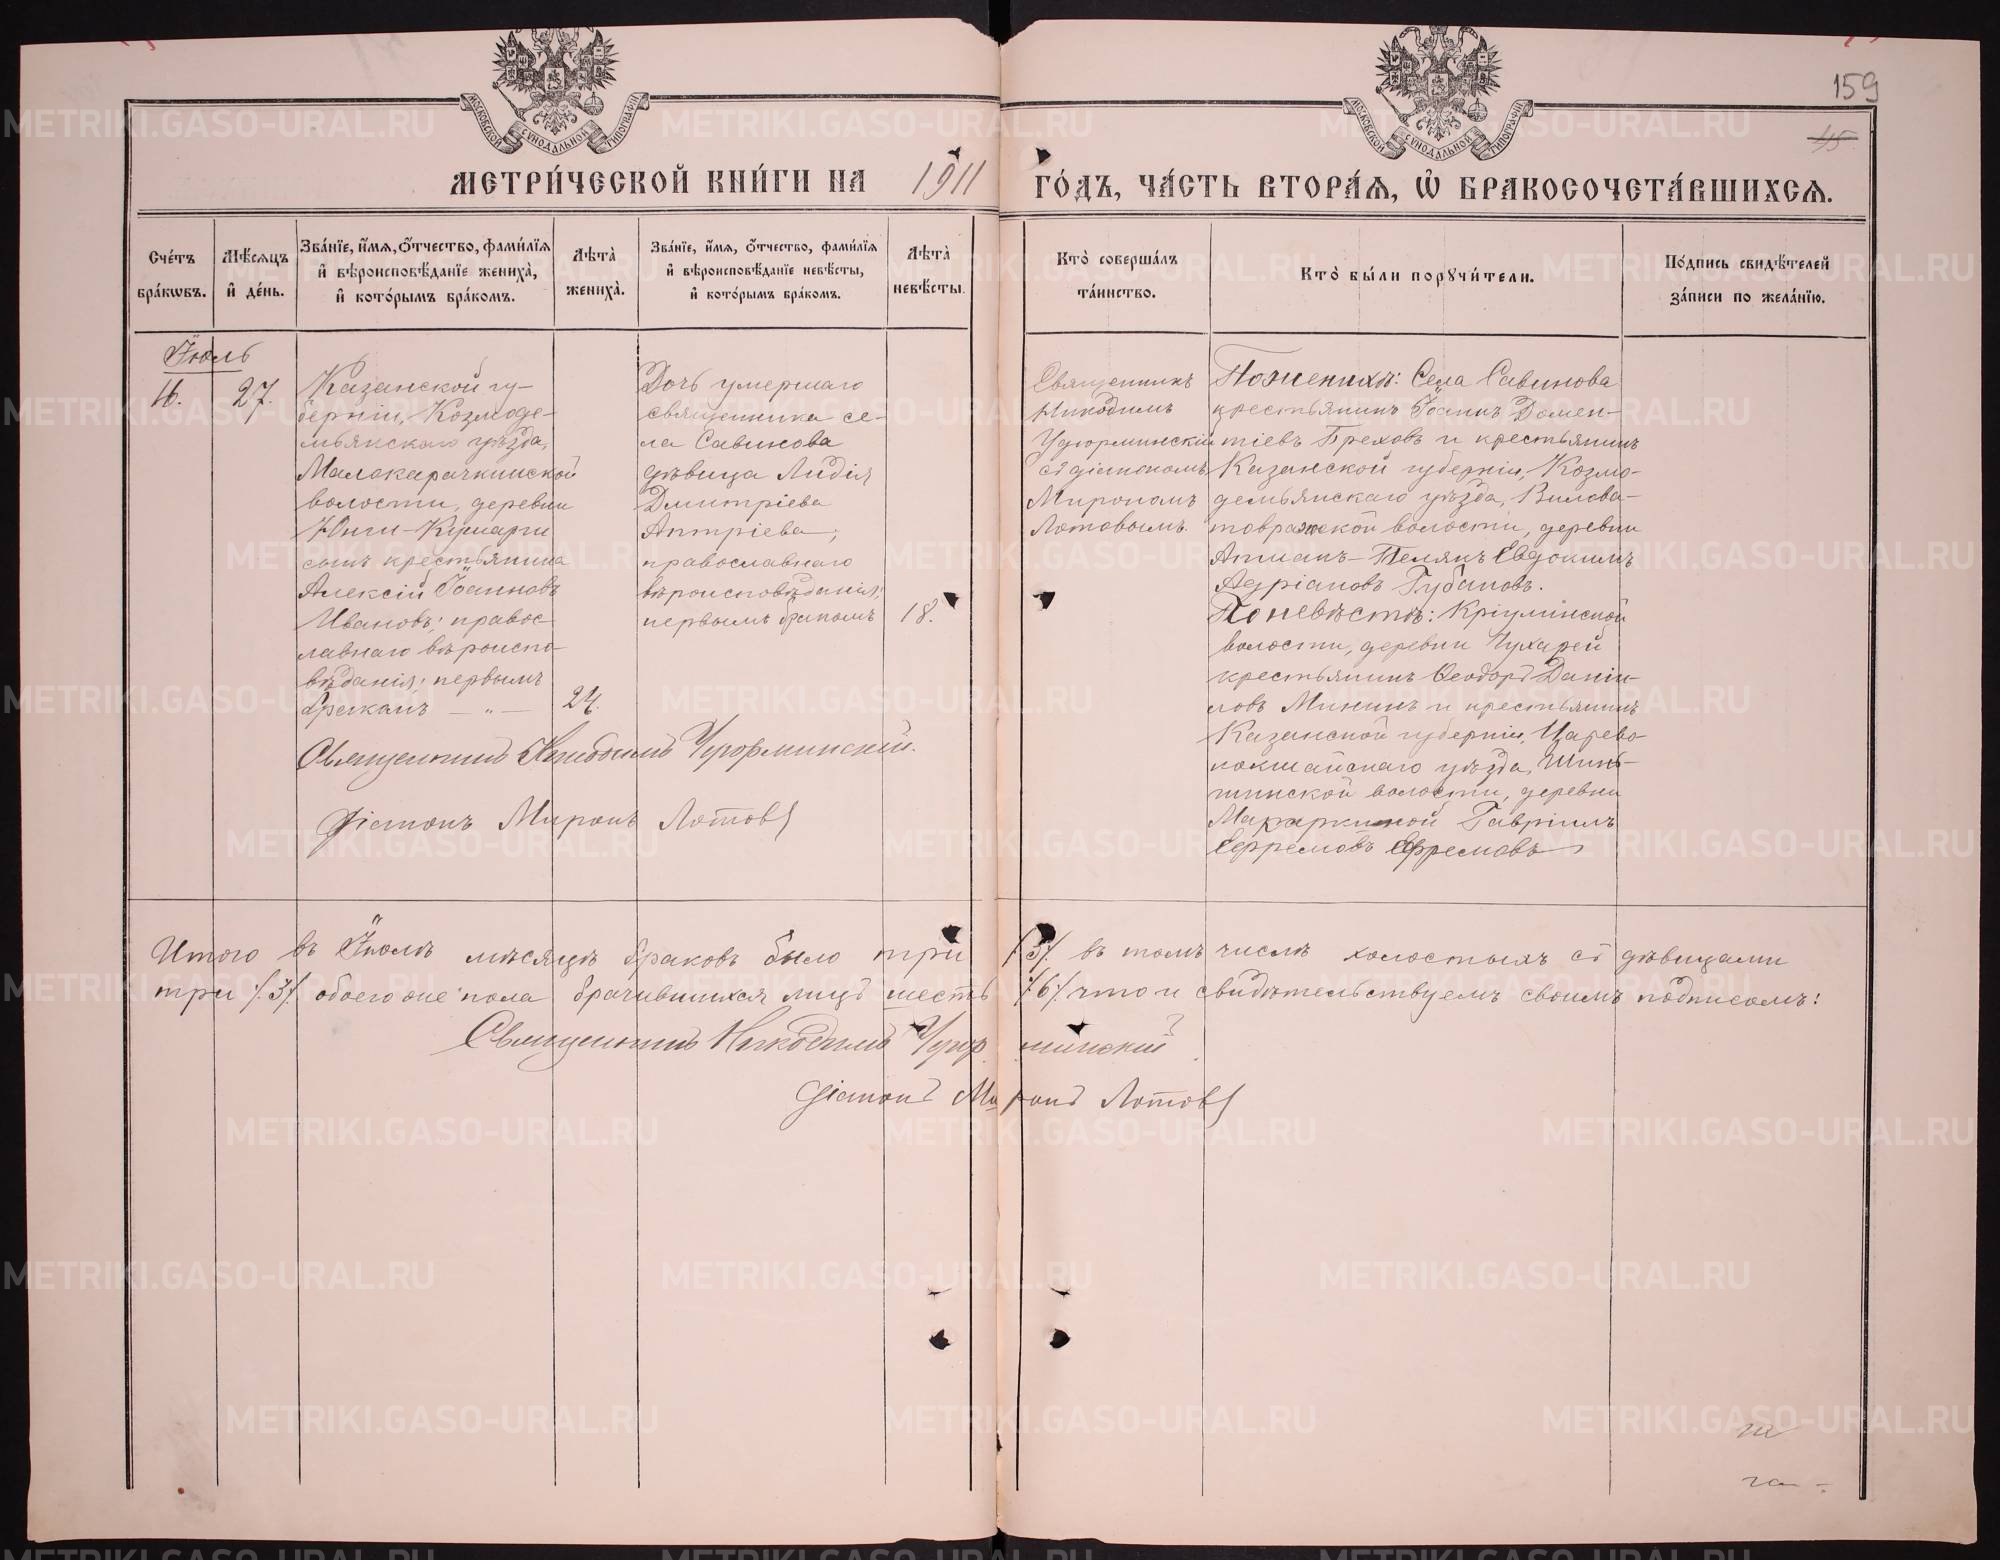 159
45
МОСКОВСКОЙ СѴНОДАЛЬНОЙ ТИПОГРАФІИ
МОСКОВСКОЙ СѴНОДАЛЬНОЙ ТИПОГРАФІИ
МЕТРИ́ЧЕСКОЙ КНИ́ГИ НА 1911 ГО́ДЪ, ЧА́СТЬ ВТОРА́Ѧ, Ѡ҆ БРАКОСОЧЕТА́ВШИХСѦ.
Сче́тъ бра́кѡвъ.
Мѣ́сѧцъ и҆ де́нь.
Зва́нїе, и҆́мѧ, ѻ҆́тчество, фами́лїѧ и҆ вѣроисповѣ́данїе жениха̀, и҆ кото́рымъ бра́комъ.
Лѣта̀ жениха̀.
Зва́нїе, и҆́мѧ, ѻ҆́тчество, фами́лїѧ и҆ вѣроисповѣ́данїе невѣ́сты, и҆ кото́рымъ бра́комъ.
Лѣта̀ невѣ́сты.
Кто̀ соверша́лъ та́инство.
Кто̀ бы́ли порꙋчи́тели.
По́дпись свидѣ́телей за́писи по жела́нїю.
Іюль
16.
27.
Казанской гу-
берніи, Козмоде-
мьянскаго уѣзда,
Малокарачкинской
волости, деревни
Юнги-Кушарги
сынъ крестьянина
Алексій Іоанновъ
Ивановъ; правос
лавнаго вѣроиспо-
вѣданія; первымъ
бракомъ — „ —
24.
Дочь умершаго
священника се-
ла Савинова
дѣвица Лидія
Дмитріева
Аптріева;
православнаго
вѣроисповѣданія;
первымъ бракомъ
18.
Священникъ
Никодимъ
Удюрминскій
съ діакономъ
Мирономъ
Лотовымъ.
По женихѣ: Села Савинова
крестьянинъ Іоаннъ Домен-
тіевъ Греховъ и крестьянинъ
Казанской губерніи, Козмо-
демьянскаго уѣзда, Вилова-
товражской волости, деревни
Атман-Пеляк Евдокимъ
Адріановъ Губановъ.
По невѣстѣ: Кріулинской
волости, деревни Чухарей
крестьянинъ Ѳеодоръ Даніи-
ловъ Мининъ и крестьянинъ
Казанской губерніи, Царево-
кокшайскаго уѣзда, Шинь-
шинской волости, деревни
Гавріилъ
Ефремовъ Ефремовъ
Священникъ Никодимъ Удюрминскій.
Діаконъ Миронъ Лотовъ
Итого въ Іюлѣ мѣсяцѣ браковъ было три /3/ въ томъ числѣ холостыхъ съ дѣвицами
три /3/ обоего же пола брачившихся лицъ шесть /6/ что и свидѣтельствуемъ своимъ подписомъ:
Священникъ Никодимъ Удюрминскій
Діаконъ Миронъ Лотовъ